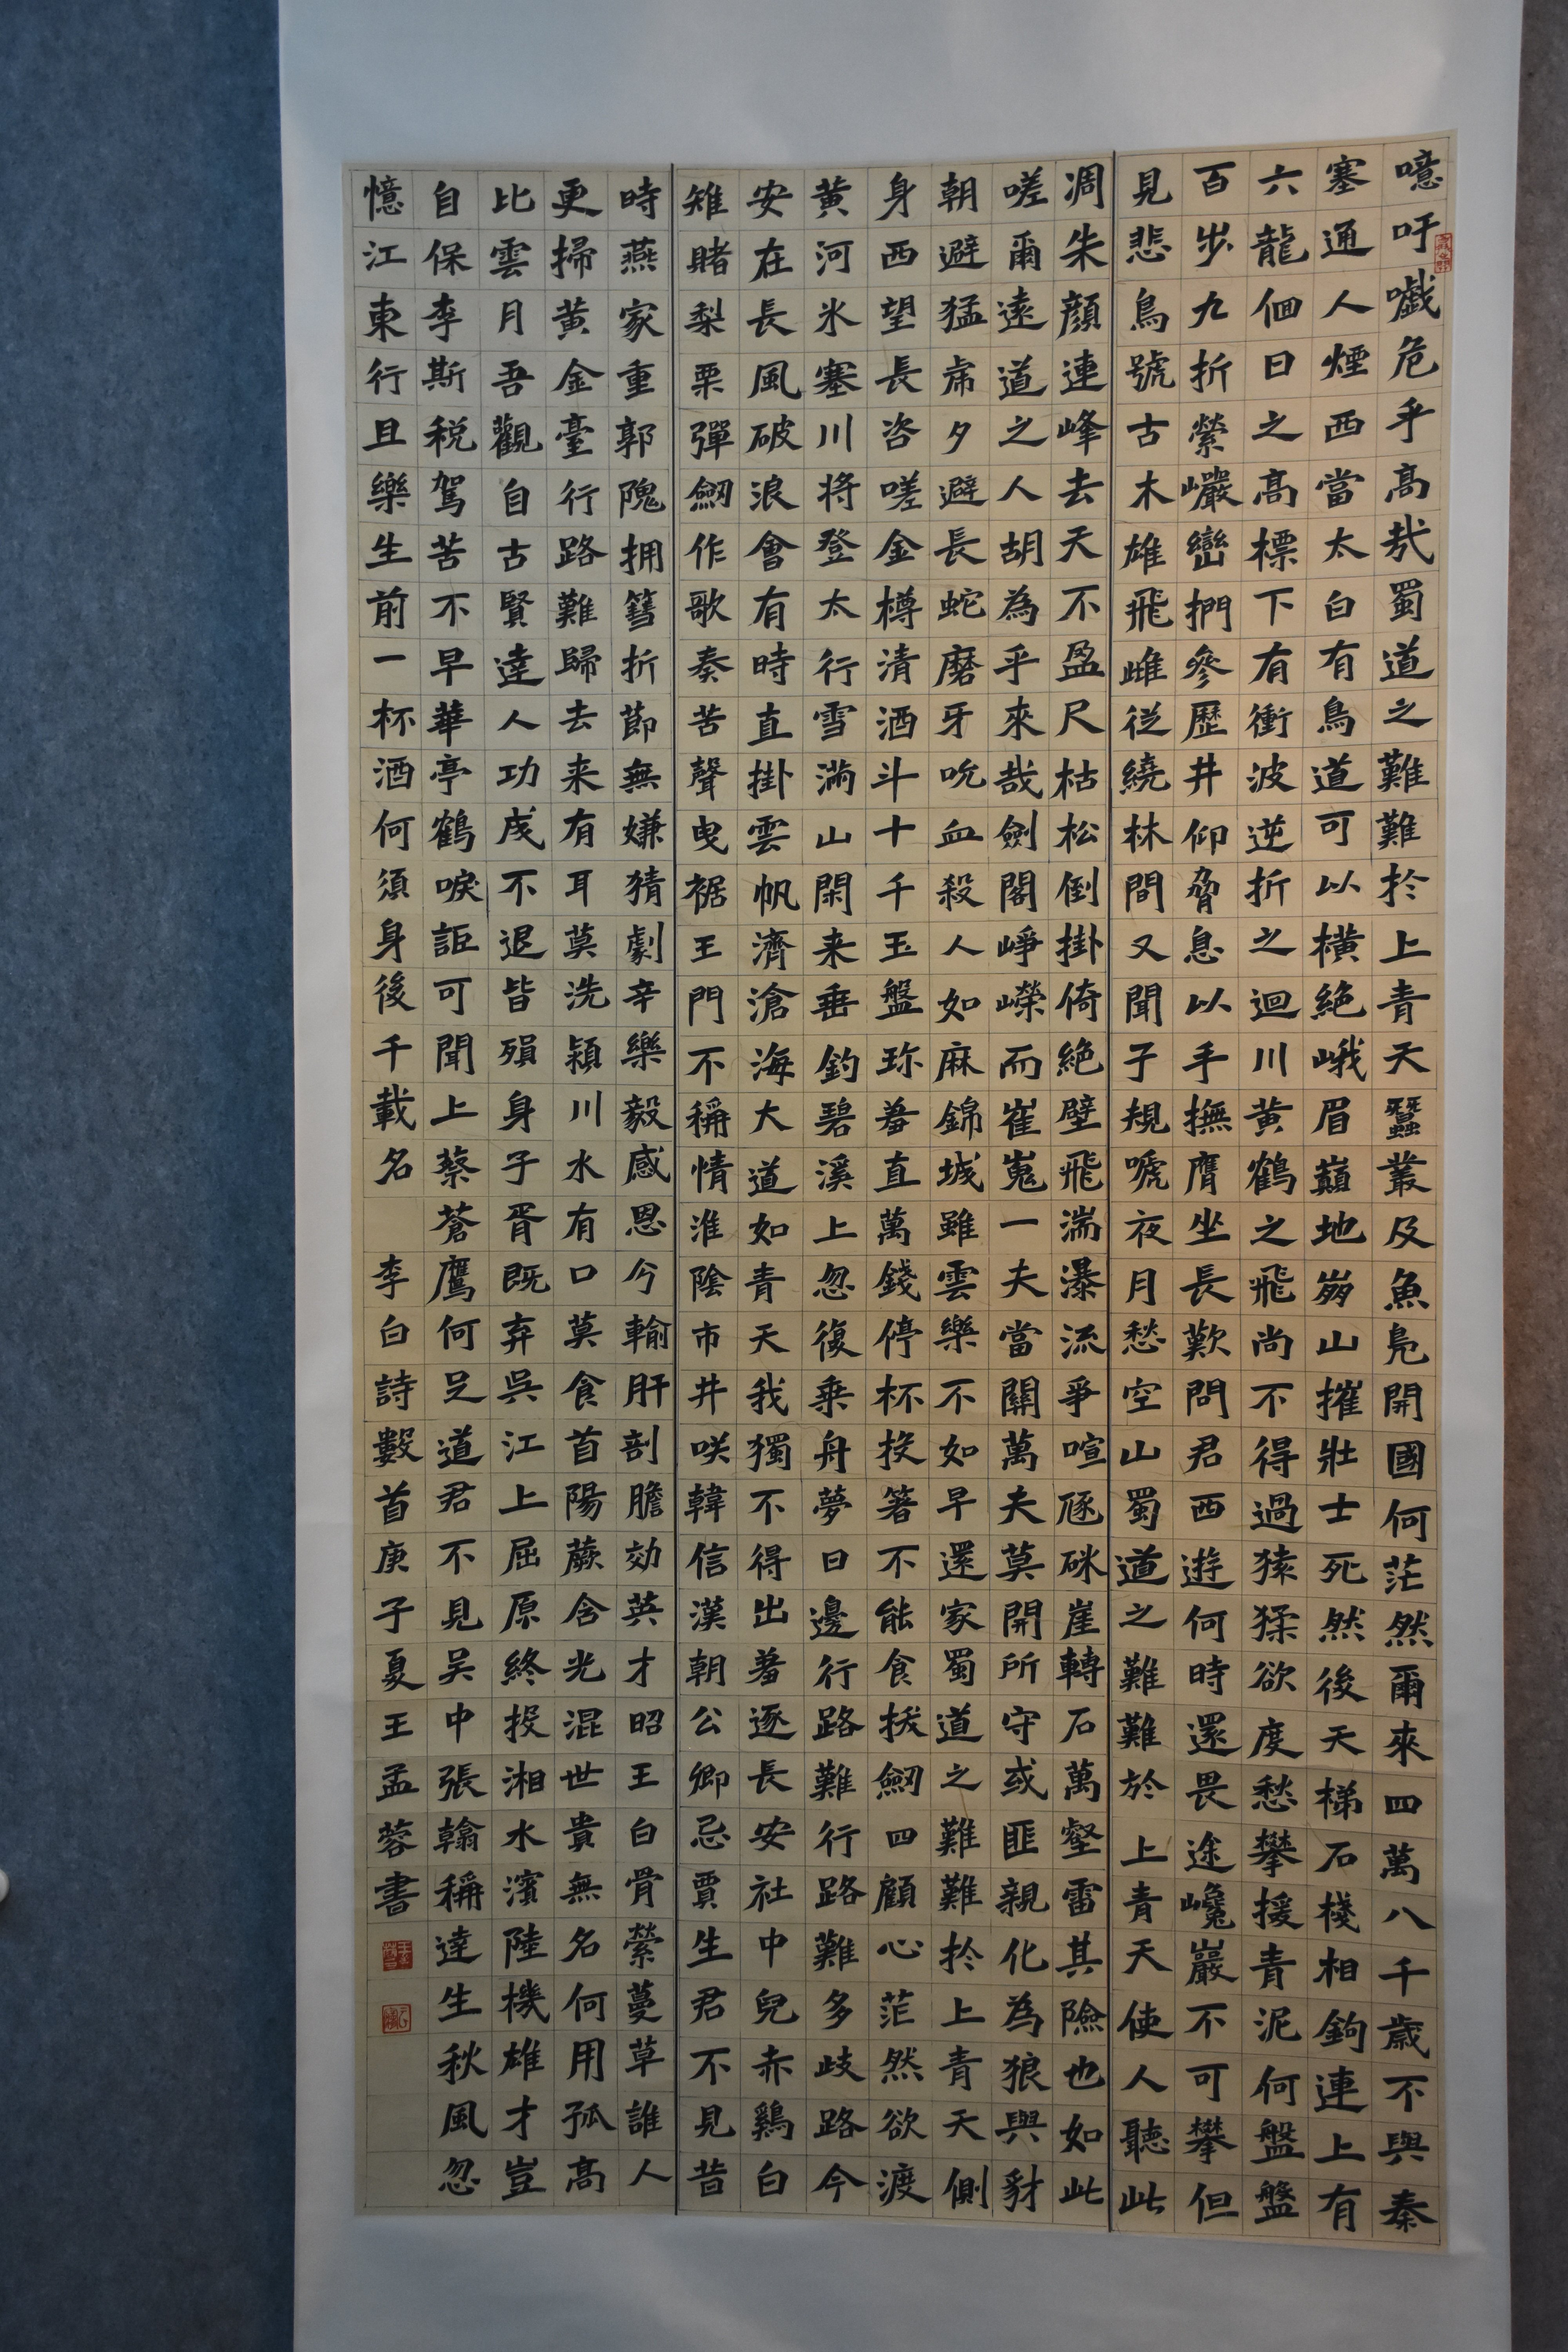 噫吁嚱危乎高哉蜀道之難難於上青天蠶叢及魚鳧開國何茫然爾來四萬八千歲不與秦
塞通人煙西當太白有鳥道可以橫絕峨眉巔地崩山摧壯士死然後天梯石棧相鉤連上有
六龍佪日之高標下有衝波逆折之迴川黃鶴之飛尚不得過猿猱欲度愁攀援青泥何盤盤
百步九折縈巖巒捫參歷井仰脅息以手撫膺坐長歎問君西遊何時還畏途巉巖不可攀但
見悲鳥號古木雄飛雌從繞林間又聞子規嗁夜月愁空山蜀道之難難於上青天使人聽此
凋朱顏連峰去天不盈尺枯松倒掛倚絕壁飛湍瀑流爭喧豗砯崖轉石萬壑雷其險也如此
嗟爾遠道之人胡為乎來哉劍閣崢嶸而崔嵬一夫當關萬夫莫開所守或匪親化為狼與豺
朝避猛虎夕避長蛇磨牙吮血殺人如麻錦城雖雲樂不如早還家蜀道之難難於上青天側
身西望長咨嗟金樽清酒斗十千玉盤珎羞直萬錢停杯投箸不能食拔劒四顧心茫然欲渡
黃河氷塞川將登太行雪滿山閑来垂釣碧溪上忽復乗舟夢日邊行路難行路難多歧路今
安在長風破浪會有時直掛雲帆濟滄海大道如青天我獨不得出羞逐長安社中兒赤鷄白
雉賭梨栗彈劒作歌奏苦聲曳裾王門不稱情淮陰市井咲韓信漢朝公卿忌賈生君不見昔
時燕家重郭隗拥篲折節無嫌猜劇辛樂毅感恩今輸肝剖膽効英才昭王白骨縈蔓草誰人
更掃黃金臺行路難歸去来有耳莫洗潁川水有口莫食首陽蕨含光混世貴無名何用孤高
比雲月吾觀自古賢達人功成不退皆殞身子胥既弃吳江上屈原終投湘水濱陸機雄才豈
自保李斯税駕苦不早華亭鶴唳詎可聞上蔡蒼鷹何足道君不見吴中張翰稱達生秋風忽
憶江東行且樂生前一杯酒何須身後千載名 李白詩數首庚子夏王孟蓉書